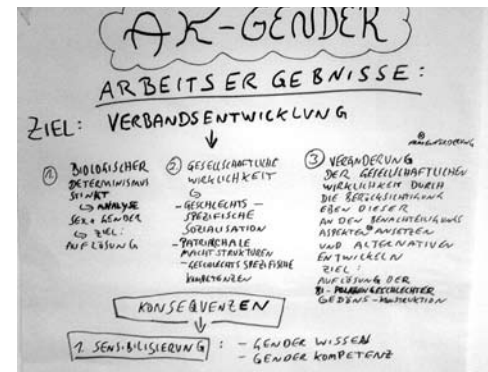 AK-GENDER
ARBEITSERGEBNISSE:
ZIEL: VERBANDSENTWICKLUNG
① BIOLOGISCHER
DETERMINISMUS
STINKT
↳ ANALYSE
SEX + GENDER
↳ ZIEL:
AUFLÖSUNG
② GESELLSCHAFTLICHE
WIRKLICHKEIT
↳
- GESCHLECHTS-
SPEZIFISCHE
SOZIALISATION
- PATRIARCHALE
MACHTSTRUKTUREN
- GESCHLECHTSSPEZIFISCHE
KOMPETENZEN
③ VERÄNDERUNG
DER GESELLSCHAFTLICHEN
WIRKLICHKEIT DURCH
DIE BERÜCKSICHTIGUNG
EBEN DIESER
AN DEN BENACHTEILIGUNGS
ASPEKTEN ANSETZEN
UND ALTERNATIVEN
ENTWICKELN
ZIEL:
AUFLÖSUNG DER
BI-POLAREN GESCHLECHTER
GEDÖNS-KONSTRUKTION
KONSEQUENZEN
1. SENSIBILISIERUNG: - GENDER WISSEN
- GENDER KOMPETENZ